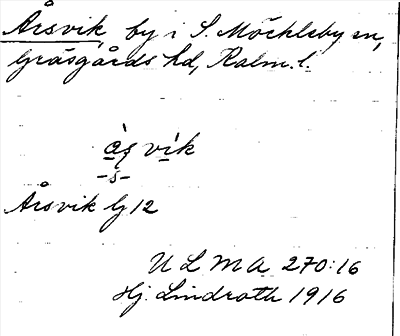 Årsvik, by i S. Möckleby sn,
Gräsgårds hd, Kalm. l.
àş vìk
-s-
Årsvik Lj 12
ULMA 270:16
Hj. Lindroth 1916